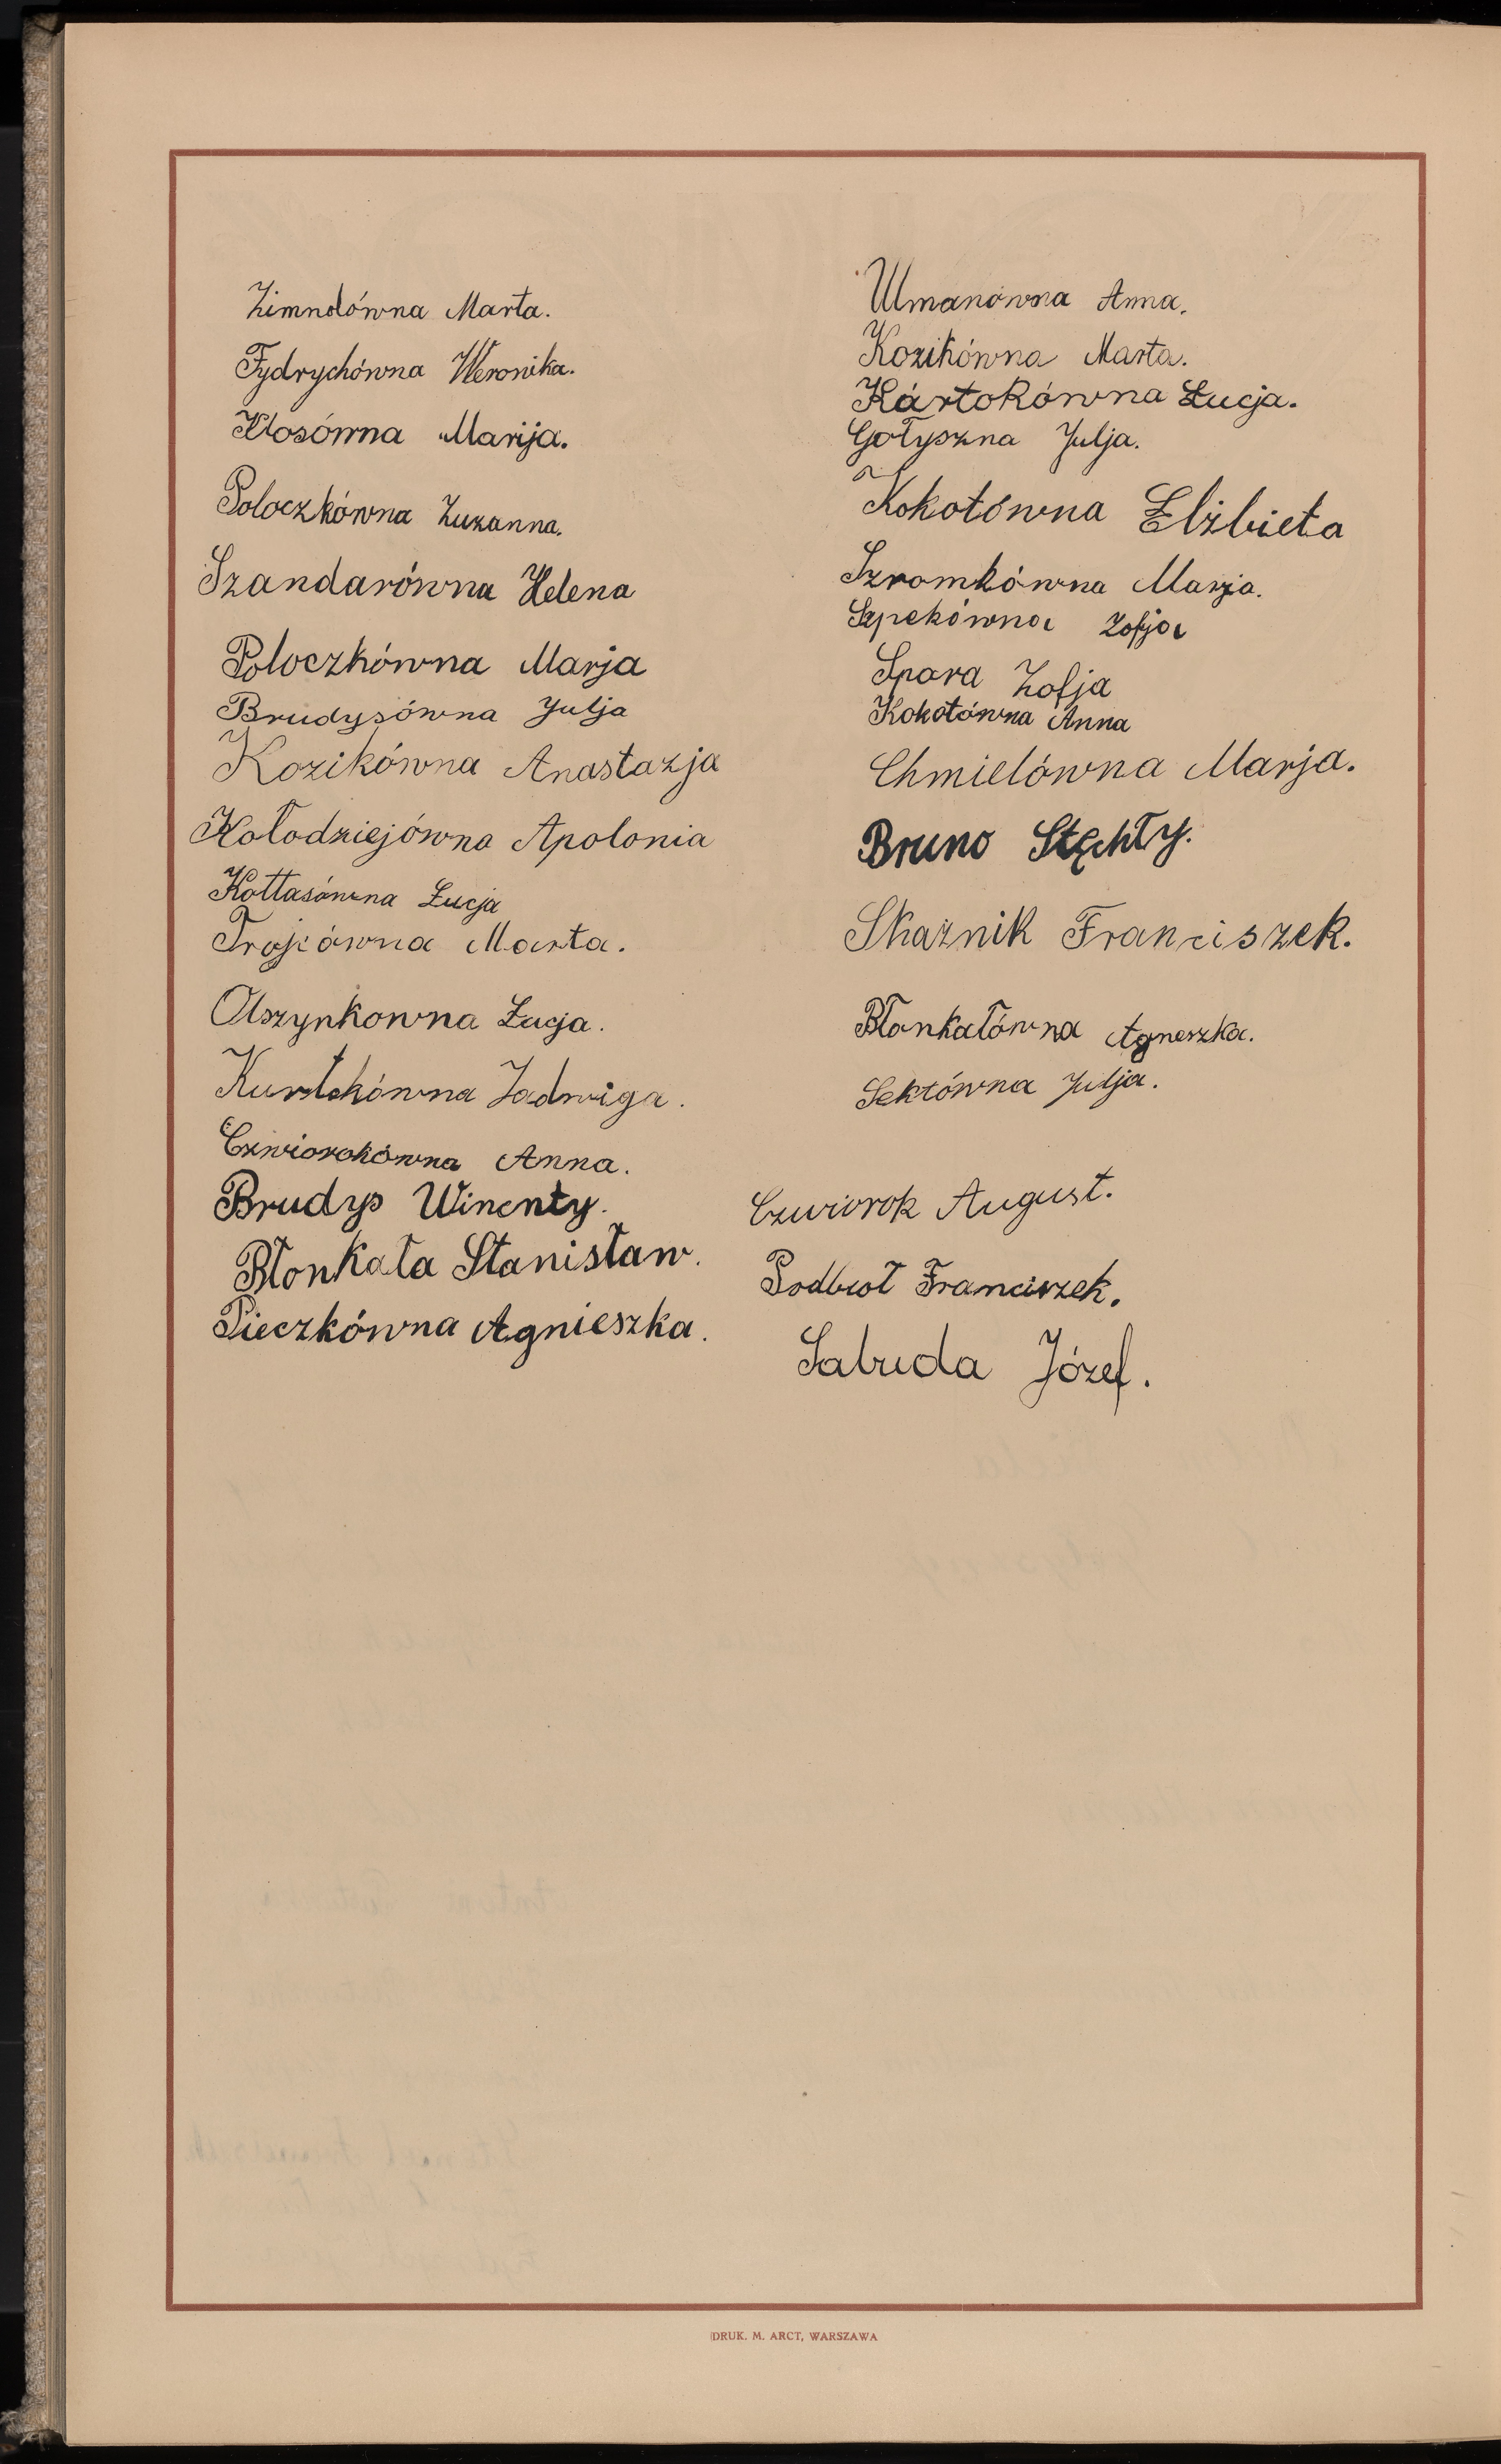 Zimnolówna Marta.
Fydrychówna Weronika.
Kłosówna Marija.
Poloczkówna Zuzanna.
Szandarówna Helena
Poloczkówna Marja
Brudysówna Julja
Kozikówna Anastazja
Kołodziejówna Apolonia
Kottasówna Łucja
Trojcówna Marta.
Olszynkowna Łucja.
Kurtkówna Jadwiga.
Czwiorokówna Anna.
Brudys Wincnty.
Błonkała Stanisław.
Pieczkówna Agnieszka.
Umanówna Anna.
Kozikówna Marta.
Kártokówna Łucja.
Gołyszna Julja.
Kokotówna Elżbieta
Szromkówna Marja.
Szpekówna Zofja
Spara Zofja
Kokotówna Anna
Chmielówna Marja.
Bruno Stęchły.
Skaźnik Franciszek.
Błonkałówna Agneszka.
Sektówna Julja.
Czwiorok August.
Podbioł Franciszek.
Sabuda Józef.
DRUK. M. ARCT, WARSZAWA